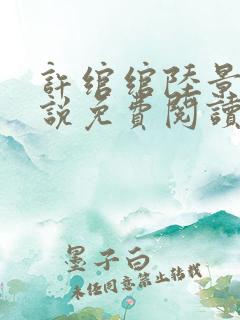 許綰綰陸景
説免費閱讀
墨子白
未任同意禁止转载